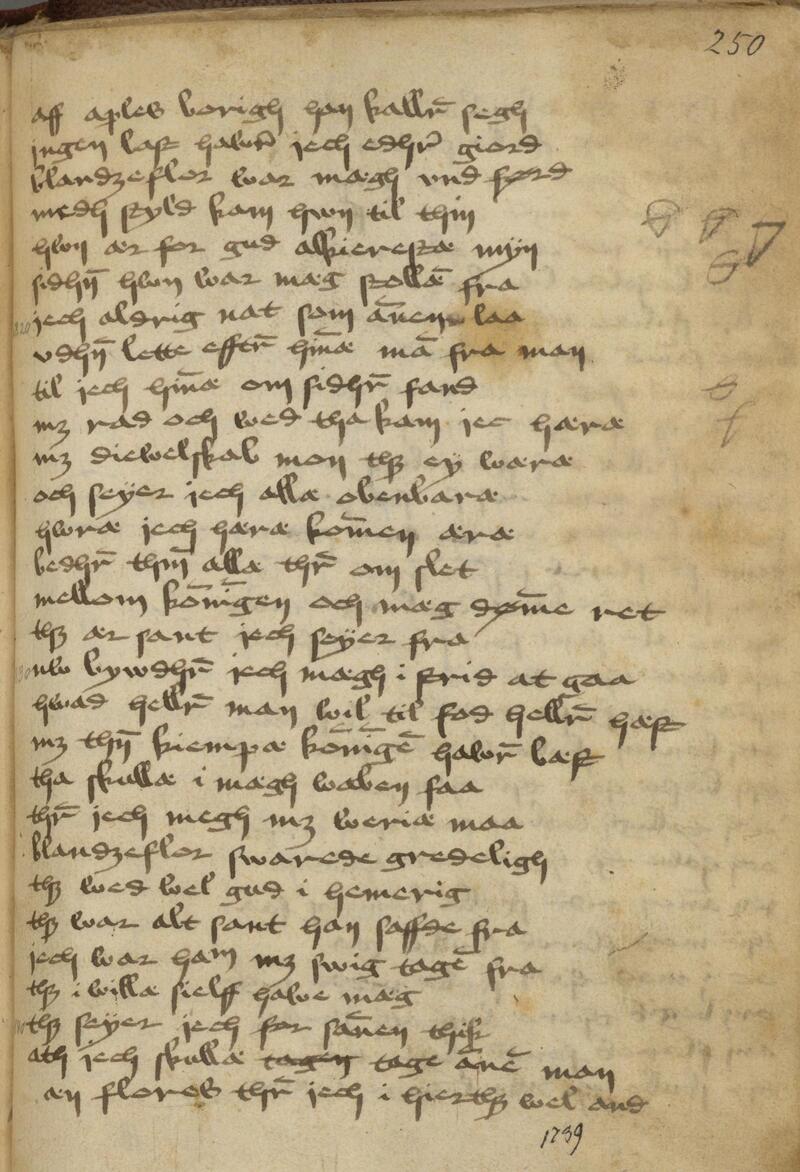 250
aff aples borigh han kallr̄ segh
jngen last hawr̄ jech edhr̄ giord
blandzeflor war mægh vnd førd
mædh styld kam hwn til thin
hwn ær for gud alkierestæ myn
sidhn̄ hwn war mæg stollā fra
jech aldrig nat som ānen laa
vdhn̄ lette efftr̄ hīnæ mā fra man
til jech hīnæ om sidhr̄ fand
mz rad och wed tha kam jec hæræ
mz diewelskab mon thz ey wæræ
och seyer jech allæ obenbaræ
hworæ jech hæræ kom̄en æræ
bedhr̄ thm̄ allæ thr̄ om slet
mellom kon̄īgen och mæg døm̄e ret
thz ær sant jech seyer fra
nw bywdhr̄ jech mægh i strid at gaa
hwad hellr̄ man wil til fod hellr̄ hæst
mz thn̄ kiempæ kon̄īgē hawr̄ bæst
tha skullæ i mægh waben faa
thr̄ jech megh mz weriæ maa
blandzeflor swarede gredeligh
thz wed wel gud i hemerig
thz war alt sant han saffde fra
jech war ham mz swig tagē fra
thz i willæ sielff hawe mæg
thz seyer jech for san̄en thik
ath jech skullæ tagen tage ānē man
æn flores thr̄ jech i hierthz wel and
1739